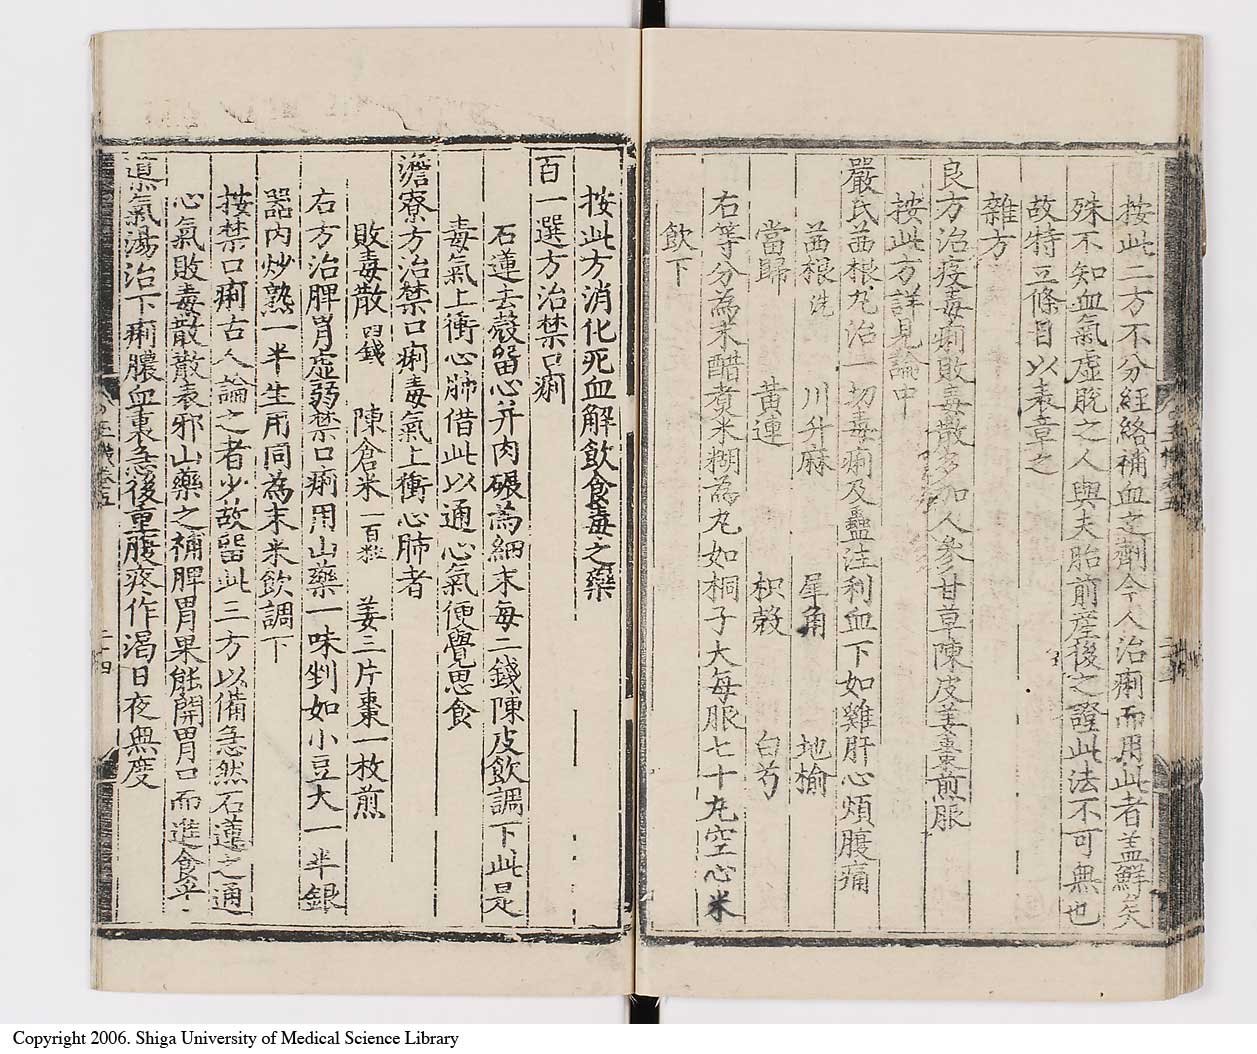 按此二方不分経絡補血之劑今人治痢而用此者盖鮮矣
殊不知血氣虛脫之人與夫胎前產後之證此法不可無也
故特立條目以表章之
雜方
良方治疫毒痢敗毒散多加人參甘草陳皮姜棗煎服
按此方詳見論中
嚴氏茜根丸治一切毒痢及蠱注利血下如雞肝心煩腹痛
茜根洗 川升麻 犀角 地榆
當歸 黃連 枳殼 白芍
右等分為末醋煮米糊為丸如桐子大每服七十丸空心米
飲下
按此方消化死血解飲食毒之藥
百一選方治禁口痢
石蓮去殼畱心并肉碾為細末每二錢陳皮飲調下此是
毒氣上衝心肺借此以通心氣便覺思食
澹寮方治禁口痢毒氣上衝心肺者
敗毒散四錢 陳倉米一百粒 姜三片棗一枚煎
右方治脾胃虛弱禁口痢用山藥一味剉如小豆大一半銀
器內炒熟一半生用同為末米飲調下
按禁口痢古人論之者少故畱此三方以備急然石蓮之通
心氣敗毒散散表邪山藥之補脾胃果能開胃口而進食乎
導氣湯治下痢膿血裏急後重腹疼作渴日夜無度
二十四
Copyright 2006. Shiga University of Medical Science Library